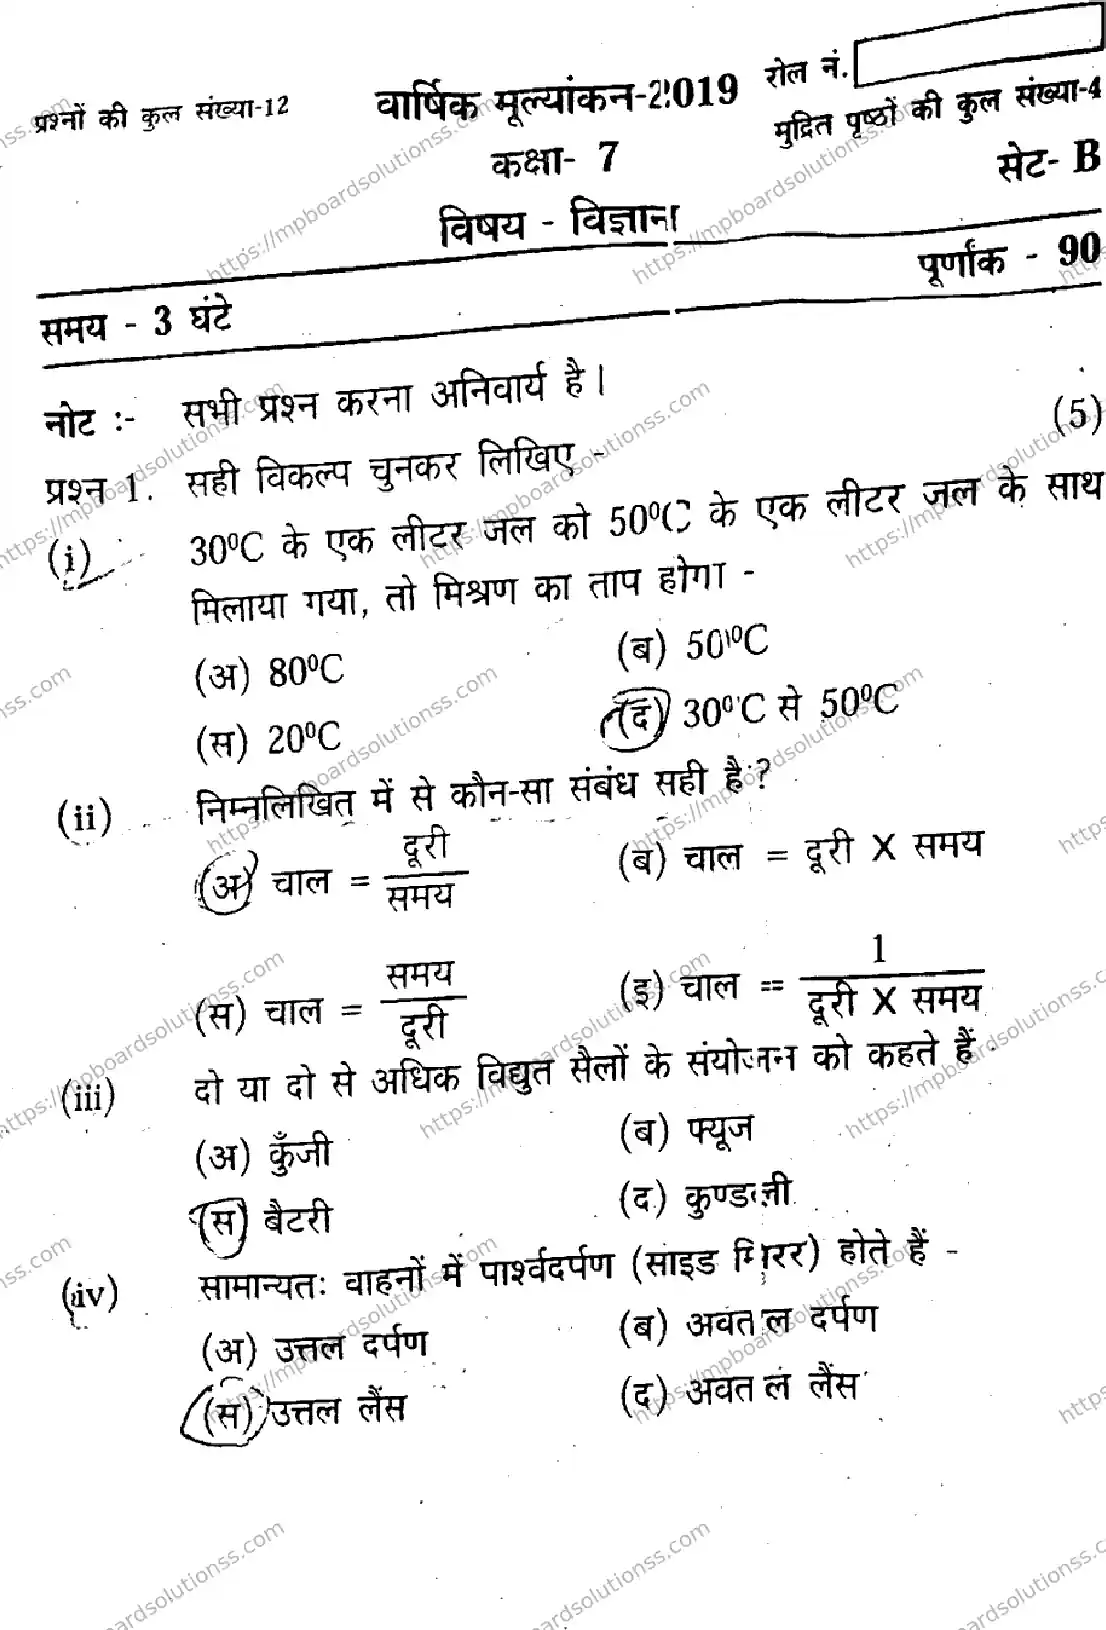 रोल नं.
प्रश्नों की कुल संख्या-12 वार्षिक मूल्यांकन-2019 मुद्रित पृष्ठों की कुल संख्या-4
कक्षा- 7 सेट- B
विषय - विज्ञान
पूर्णांक - 90
समय - 3 घंटे
नोट :- सभी प्रश्न करना अनिवार्य है।
प्रश्न 1. सही विकल्प चुनकर लिखिए - (5)
(i) 30⁰C के एक लीटर जल को 50⁰C के एक लीटर जल के साथ
मिलाया गया, तो मिश्रण का ताप होगा -
(अ) 80⁰C (ब) 50⁰C
(स) 20⁰C (द) 30⁰C से 50⁰C
(ii) निम्नलिखित में से कौन-सा संबंध सही है?
(अ) चाल = दूरी / समय (ब) चाल = दूरी X समय
(स) चाल = समय / दूरी (इ) चाल = 1 / दूरी X समय
(iii) दो या दो से अधिक विद्युत सैलों के संयोजन को कहते हैं -
(अ) कुँजी (ब) फ्यूज
(स) बैटरी (द) कुण्डली
(iv) सामान्यतः वाहनों में पार्श्वदर्पण (साइड मिरर) होते हैं -
(अ) उत्तल दर्पण (ब) अवतल दर्पण
(स) उत्तल लैंस (द) अवतल लैंस
https://mpboardsolutionss.com